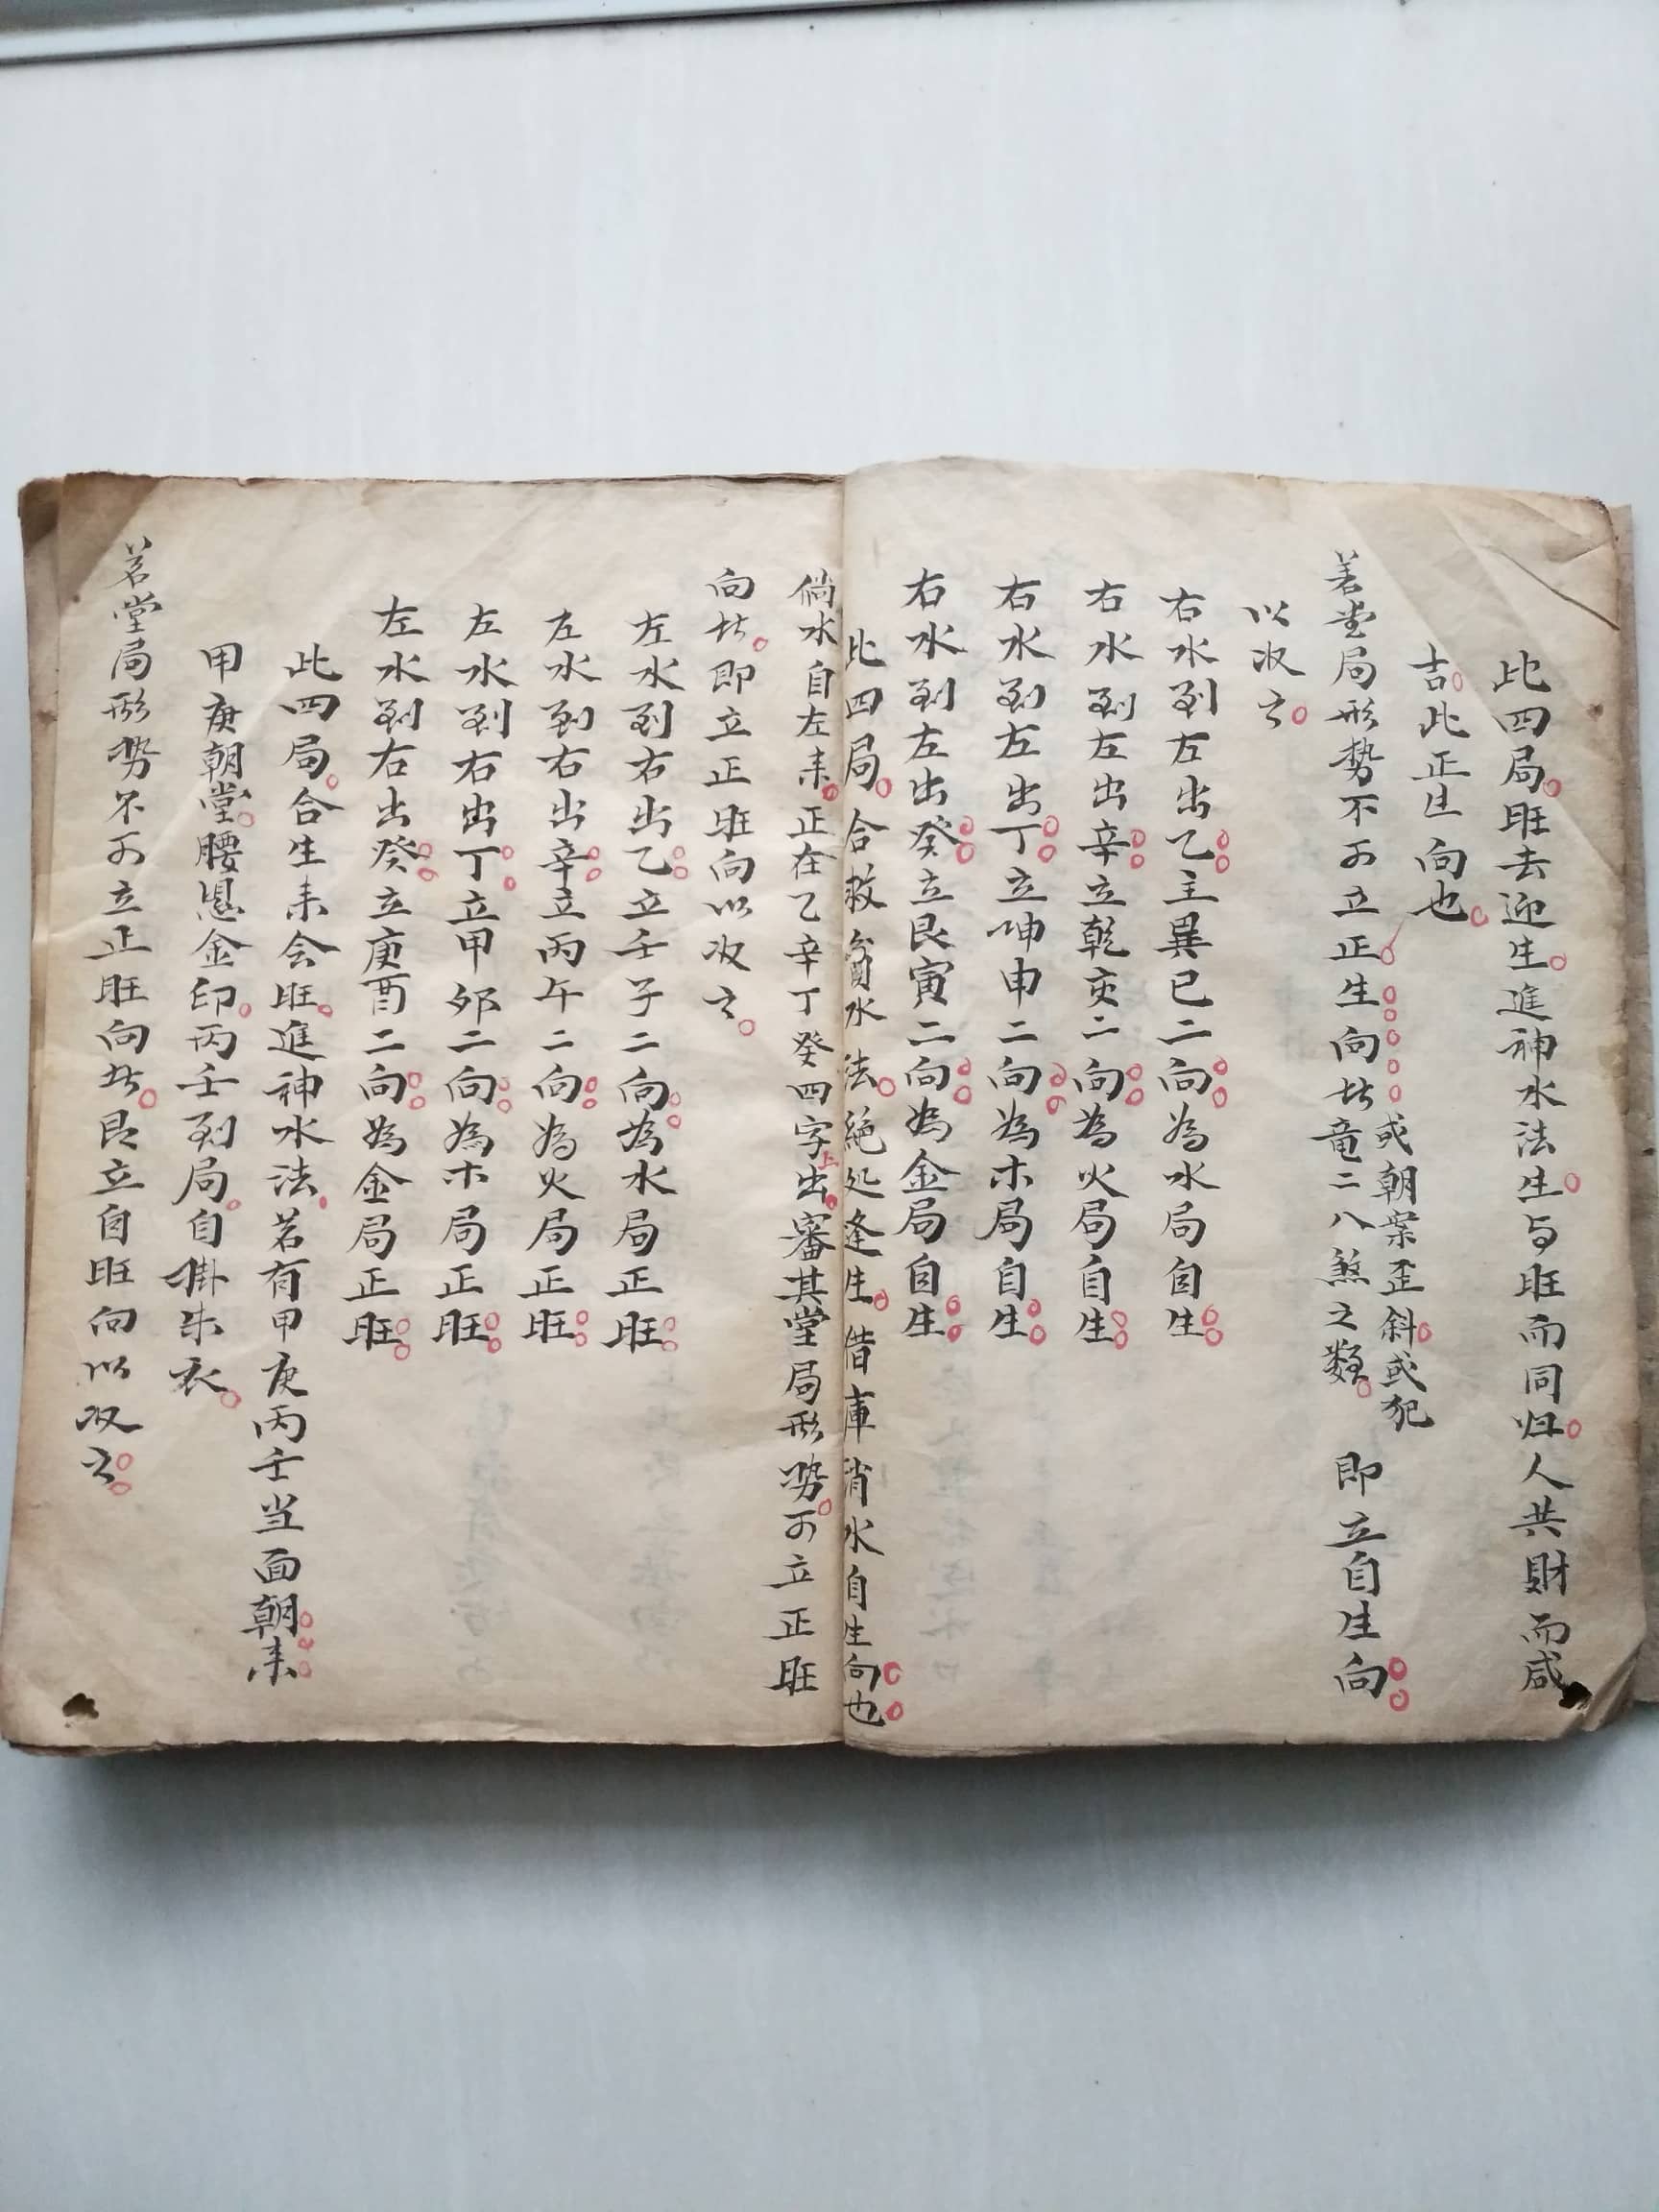 此四局旺去迎生進神水法生与旺而同归人共財而咸
吉此正生向也
若堂局形势不可立正生向
或朝案歪斜或犯
竜二八煞之類
即立自生向
以収之
右水到左出乙主巽巳二向為水局自生
右水到左出辛立乾亥二向為火局自生
右水到左出丁立坤申二向為木局自生
右水到左出癸立艮寅二向為金局自生
此四局合救貧水法絕処逢生借庫消水自生向也
倘水自左耒正在乙辛丁癸四字上出審其堂局形势可立正旺
向㘯即立正旺向以収之
左水到右出乙立壬子二向為水局正旺
左水到右出辛立丙午二向為火局正旺
左水到右出丁立甲卯二向為木局正旺
左水到右出癸立庚酉二向為金局正旺
此四局合生耒会旺進神水法若有甲庚丙壬当面朝耒
甲庚朝堂腰悬金印丙壬到局自掛朱衣
若堂局形势不可立正旺向即立自旺向以収之